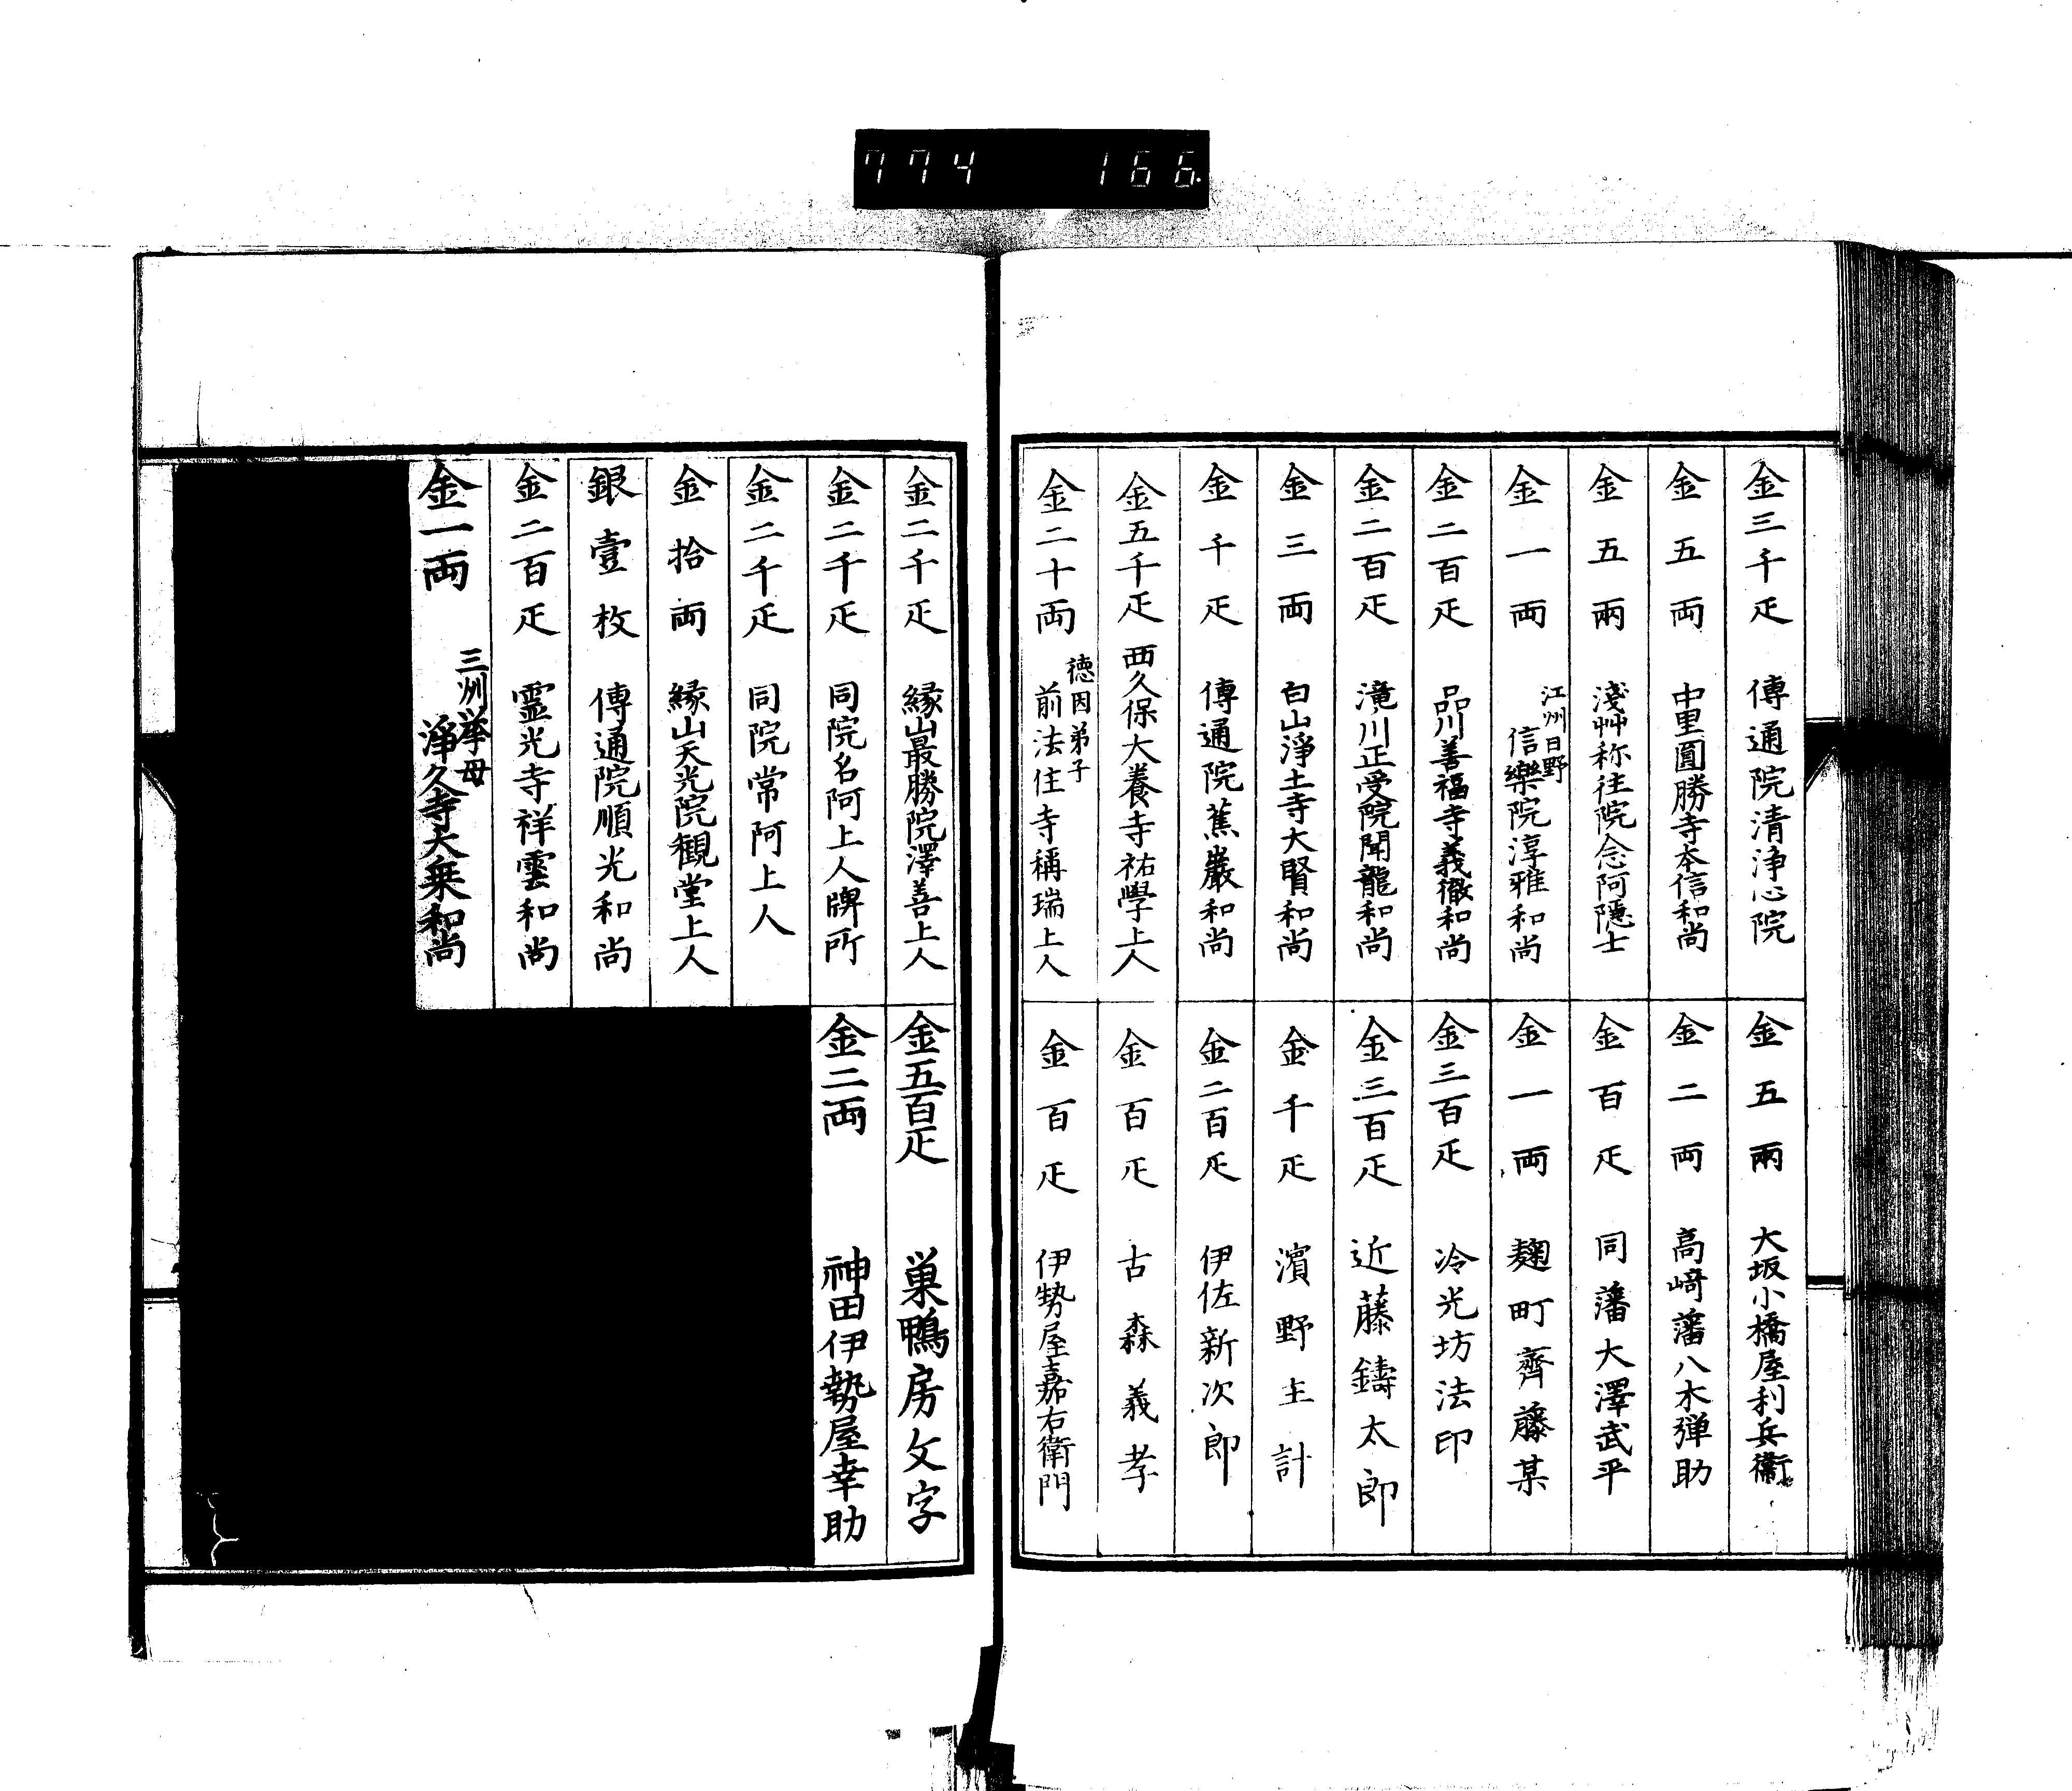 774 166
金三千疋 傳通院清浄心院
金五両 中里圓勝寺本信和尚
金五兩 淺艸称往院念阿隱士
金一両 江州日野 信樂院淳雅和尚
金二百疋 品川善福寺義徹和尚
金二百疋 滝川正受院聞龍和尚
金三両 白山淨土寺大賢和尚
金千疋 傳通院蕉巖和尚
金五千疋 西久保大養寺祐學上人
金二十両 德因弟子 前法住寺稱瑞上人
金五兩 大坂小橋屋利兵衞
金二両 高崎藩八木弾助
金百疋 同藩大澤武平
金一両 麹町齊藤某
金三百疋 冷光坊法印
金三百疋 近藤鑄太郎
金千疋 濱野主計
金二百疋 伊佐新次郎
金百疋 古森義孝
金百疋 伊勢屋嘉右衛門
金二千疋 縁山最勝院澤善上人
金二千疋 同院名阿上人牌所
金二千疋 同院常阿上人
金拾両 縁山天光院観堂上人
銀壹枚 傳通院順光和尚
金二百疋 霊光寺祥雲和尚
金一両 三州挙母 淨久寺大乗和尚
金五百疋 巣鴨房文字
金二両 神田伊勢屋幸助